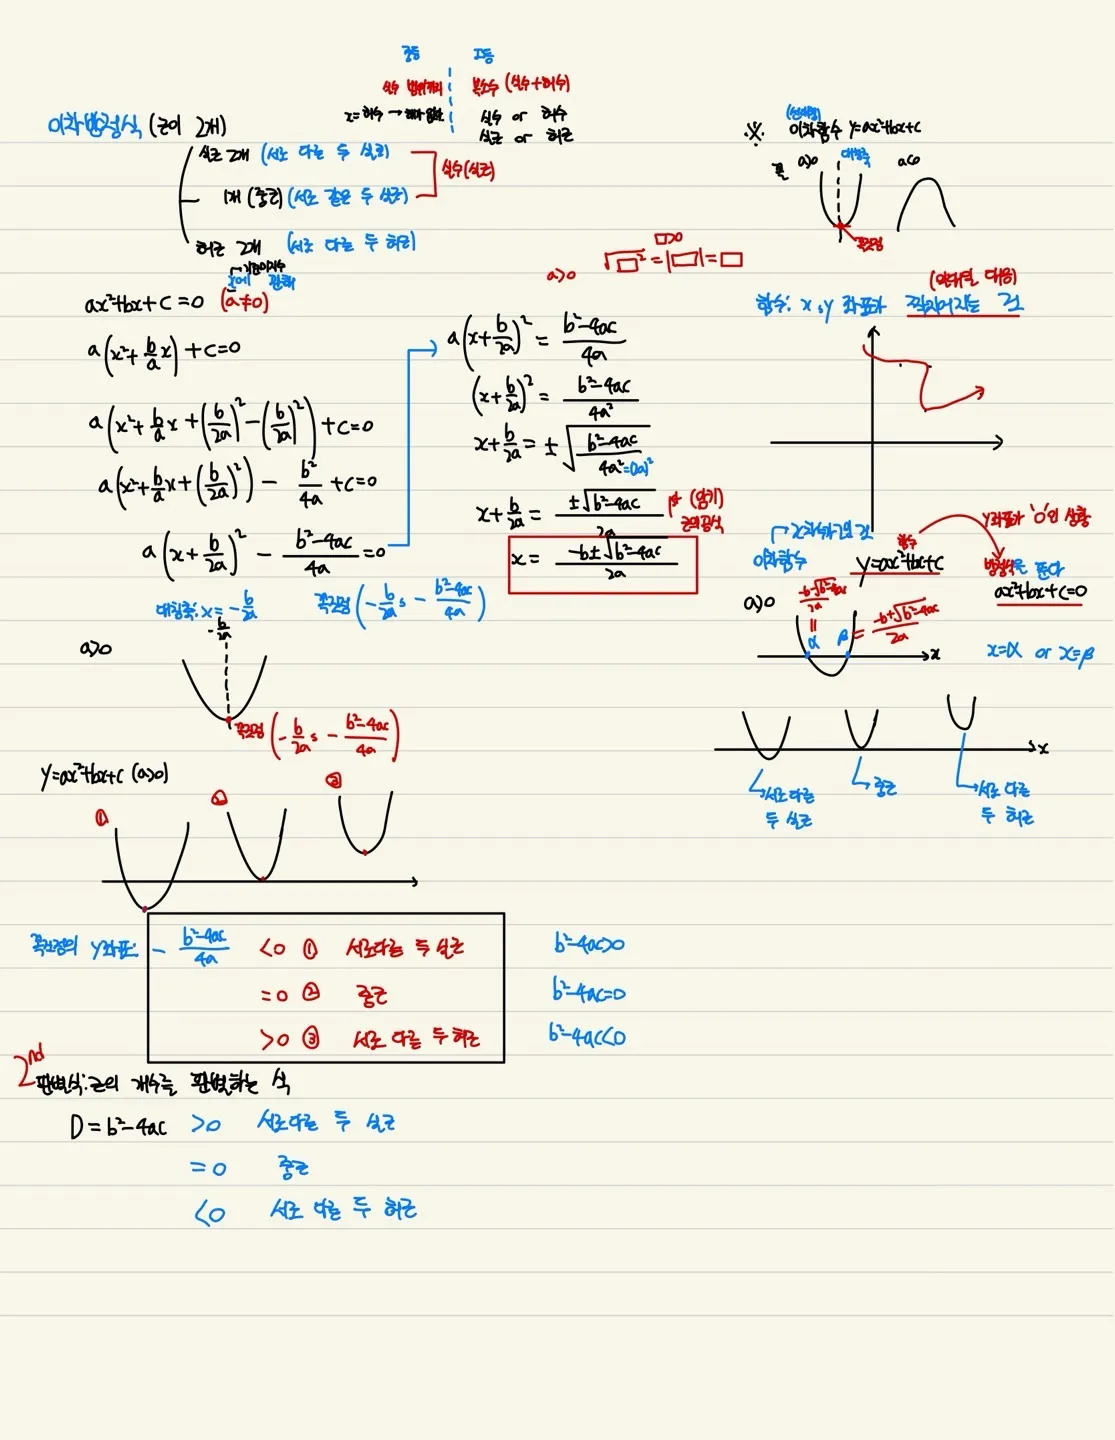 중등
고등
실수 범위까지
복소수 (실수+허수)
x=허수 →
실수 or 허수
실근 or 허근
이차방정식 (근이 2개)
실근 2개 (서로 다른 두 실근)
1개 (중근) (서로 같은 두 실근)
실수(실근)
허근 2개 (서로 다른 두 허근)
x에 관해
ax²+bx+c=0 (a≠0)
a(x²+b/a x)+c=0
a(x²+b/a x+(b/2a)²-(b/2a)²)+c=0
a(x²+b/a x+(b/2a)²) - b²/4a +c=0
a(x+b/2a)² - b²-4ac/4a =0
대칭축: x=-b/2a
꼭짓점(-b/2a, -b²-4ac/4a)
a>0
□>0
√□² = |□| = □
a(x+b/2a)² = b²-4ac/4a
(x+b/2a)² = b²-4ac/4a²
x+b/2a = ±√b²-4ac/4a²=(2a)²
x+b/2a = ±√b²-4ac/2a
1st (암기)
근의공식
x= -b±√b²-4ac/2a
a>0
-b/2a
꼭짓점(-b/2a, -b²-4ac/4a)
y=ax²+bx+c (a>0)
①
②
③
꼭짓점의 y좌표: - b²-4ac/4a <0 ① 서로다른 두 실근 b²-4ac>0
=0 ② 중근 b²-4ac=0
>0 ③ 서로 다른 두 허근 b²-4ac<0
2nd
판별식: 근의 개수를 판별하는 식
D=b²-4ac >0 서로다른 두 실근
=0 중근
<0 서로 다른 두 허근
※ 이차함수 y=ax²+bx+c
a>0
대칭축
a<0
꼭짓점
함수: x, y 좌표가 짝지어지는 것
(일대일 대응)
이차함수
함수
y=ax²+bx+c
y좌표가 '0'인 상황
방정식을 푼다
ax²+bx+c=0
a>0
-b-√b²-4ac/2a = α
β = -b+√b²-4ac/2a
x
x=α or x=β
x
서로다른
두 실근
중근
서로 다른
두 허근